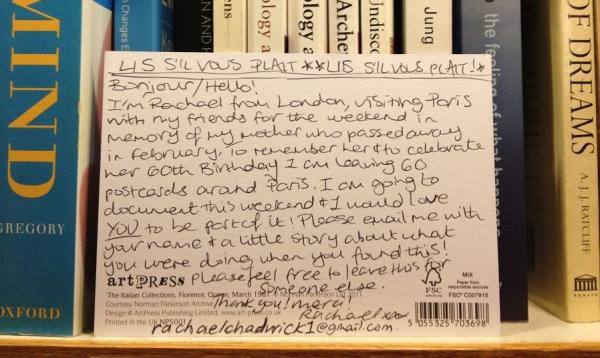 MIND
GREGORY
OXFORD
Changes E
AN AND H
ens
ology a
ology a
Archet
Undisco
Jung
the feeling of what happens
OF DREAMS
A. J. J. RATCLIFF
SENATE
LIS S'IL VOUS PLAIT **LIS S'IL VOUS PLAIT!*
Bonjour/Hello!
I'm Rachael from London, visiting Paris
with my friends for the weekend in
memory of my mother who passed away
in February, to remember her & to celebrate
her 60th Birthday I am leaving 60
postcards around Paris. I am going to
document this weekend & I would love
YOU to be part of it! Please email me with
your name & a little story about what
you were doing when you found this!
Please feel free to leave this for
someone else.
Thank you! merci!
Rachael xxx
rachaelchadwick1@gmail.com
artPRESS
'The Italian Collections, Florence, Queen, March 1951' © Norman Parkinson Ltd 2011
Courtesy Norman Parkinson Archive
Design © ArtPress Publishing Limited, www.art-press.co.uk
Printed in the UK NP5001
FSC
MIX
Paper from
responsible sources
FSC® C007915
5 055325 703698